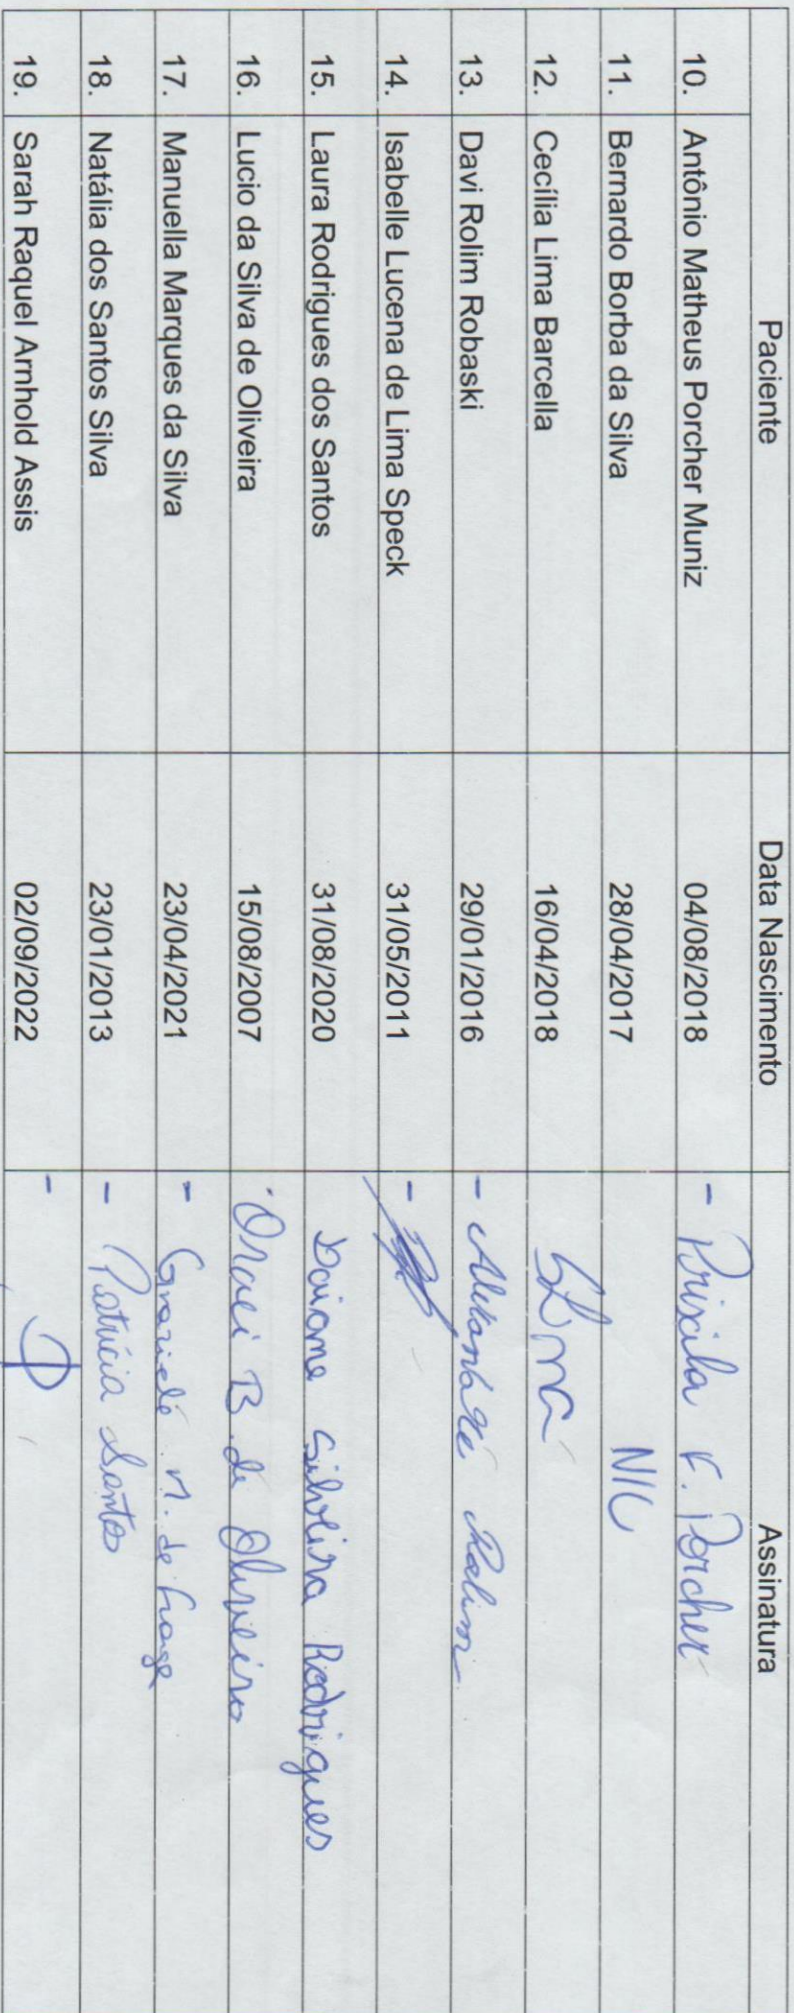 Paciente Data Nascimento Assinatura
10. Antônio Matheus Porcher Muniz 04/08/2018 - Priscila F. Porcher
11. Bernardo Borba da Silva 28/04/2017 NIC
12. Cecília Lima Barcella 16/04/2018
13. Davi Rolim Robaski 29/01/2016 - Rolim
14. Isabelle Lucena de Lima Speck 31/05/2011 -
15. Laura Rodrigues dos Santos 31/08/2020 Daiane Silveira Rodrigues
16. Lucio da Silva de Oliveira 15/08/2007 B. de Oliveira
17. Manuella Marques da Silva 23/04/2021 - M. de
18. Natália dos Santos Silva 23/01/2013 - Patrícia Santos
19. Sarah Raquel Arnhold Assis 02/09/2022 -